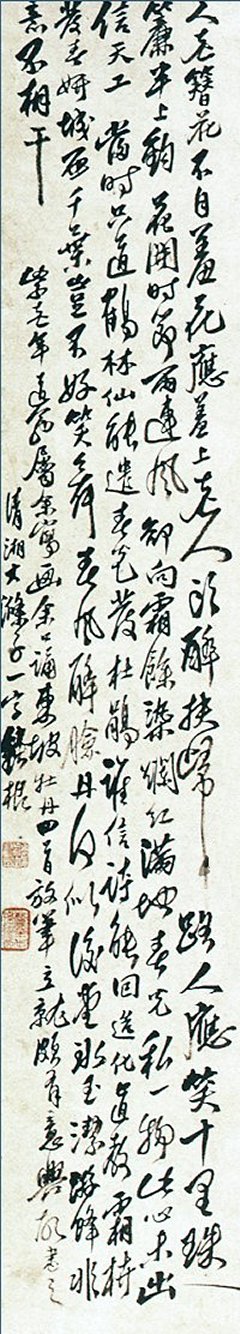 人老簪花不自羞花應羞上老人頭醉扶歸路人應笑十里珠
簾半上鉤 花開時節雨連風卻向霜餘染爛紅滿地春光私一物此心未出
信天工 當時只道鶴林仙能遣春光發杜鵑誰信詩能回造化直教霜枿
發春妍 城西千葉豈不好笑舞春風醉臉丹何似後堂冰玉潔游蜂非
意不相干
紫老年道翁屬余寫画余口誦東坡牡丹四首放筆立就頗有意興故書之
清湘大滌子一字鈍根